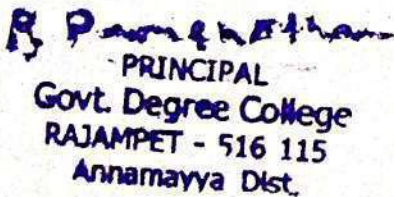 PRINCIPAL
Govt. Degree College
RAJAMPET - 516 115
Annamayya Dist.